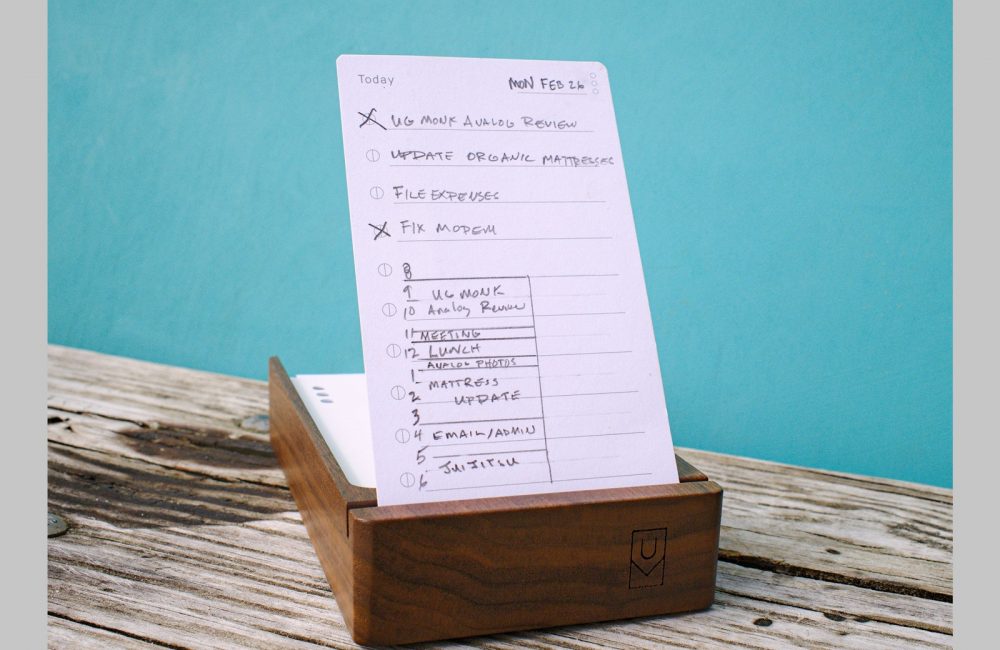 Today MON FEB 26
UG MONK ANALOG REVIEW
UPDATE ORGANIC MATTRESSES
FILE EXPENSES
FIX MODEM
8
9 UG MONK
10 Analog Review
11 MEETING
12 LUNCH
ANALOG PHOTOS
1
MATTRESS
2 UPDATE
3
4 EMAIL/ADMIN
5
JUIJITSU
6
U